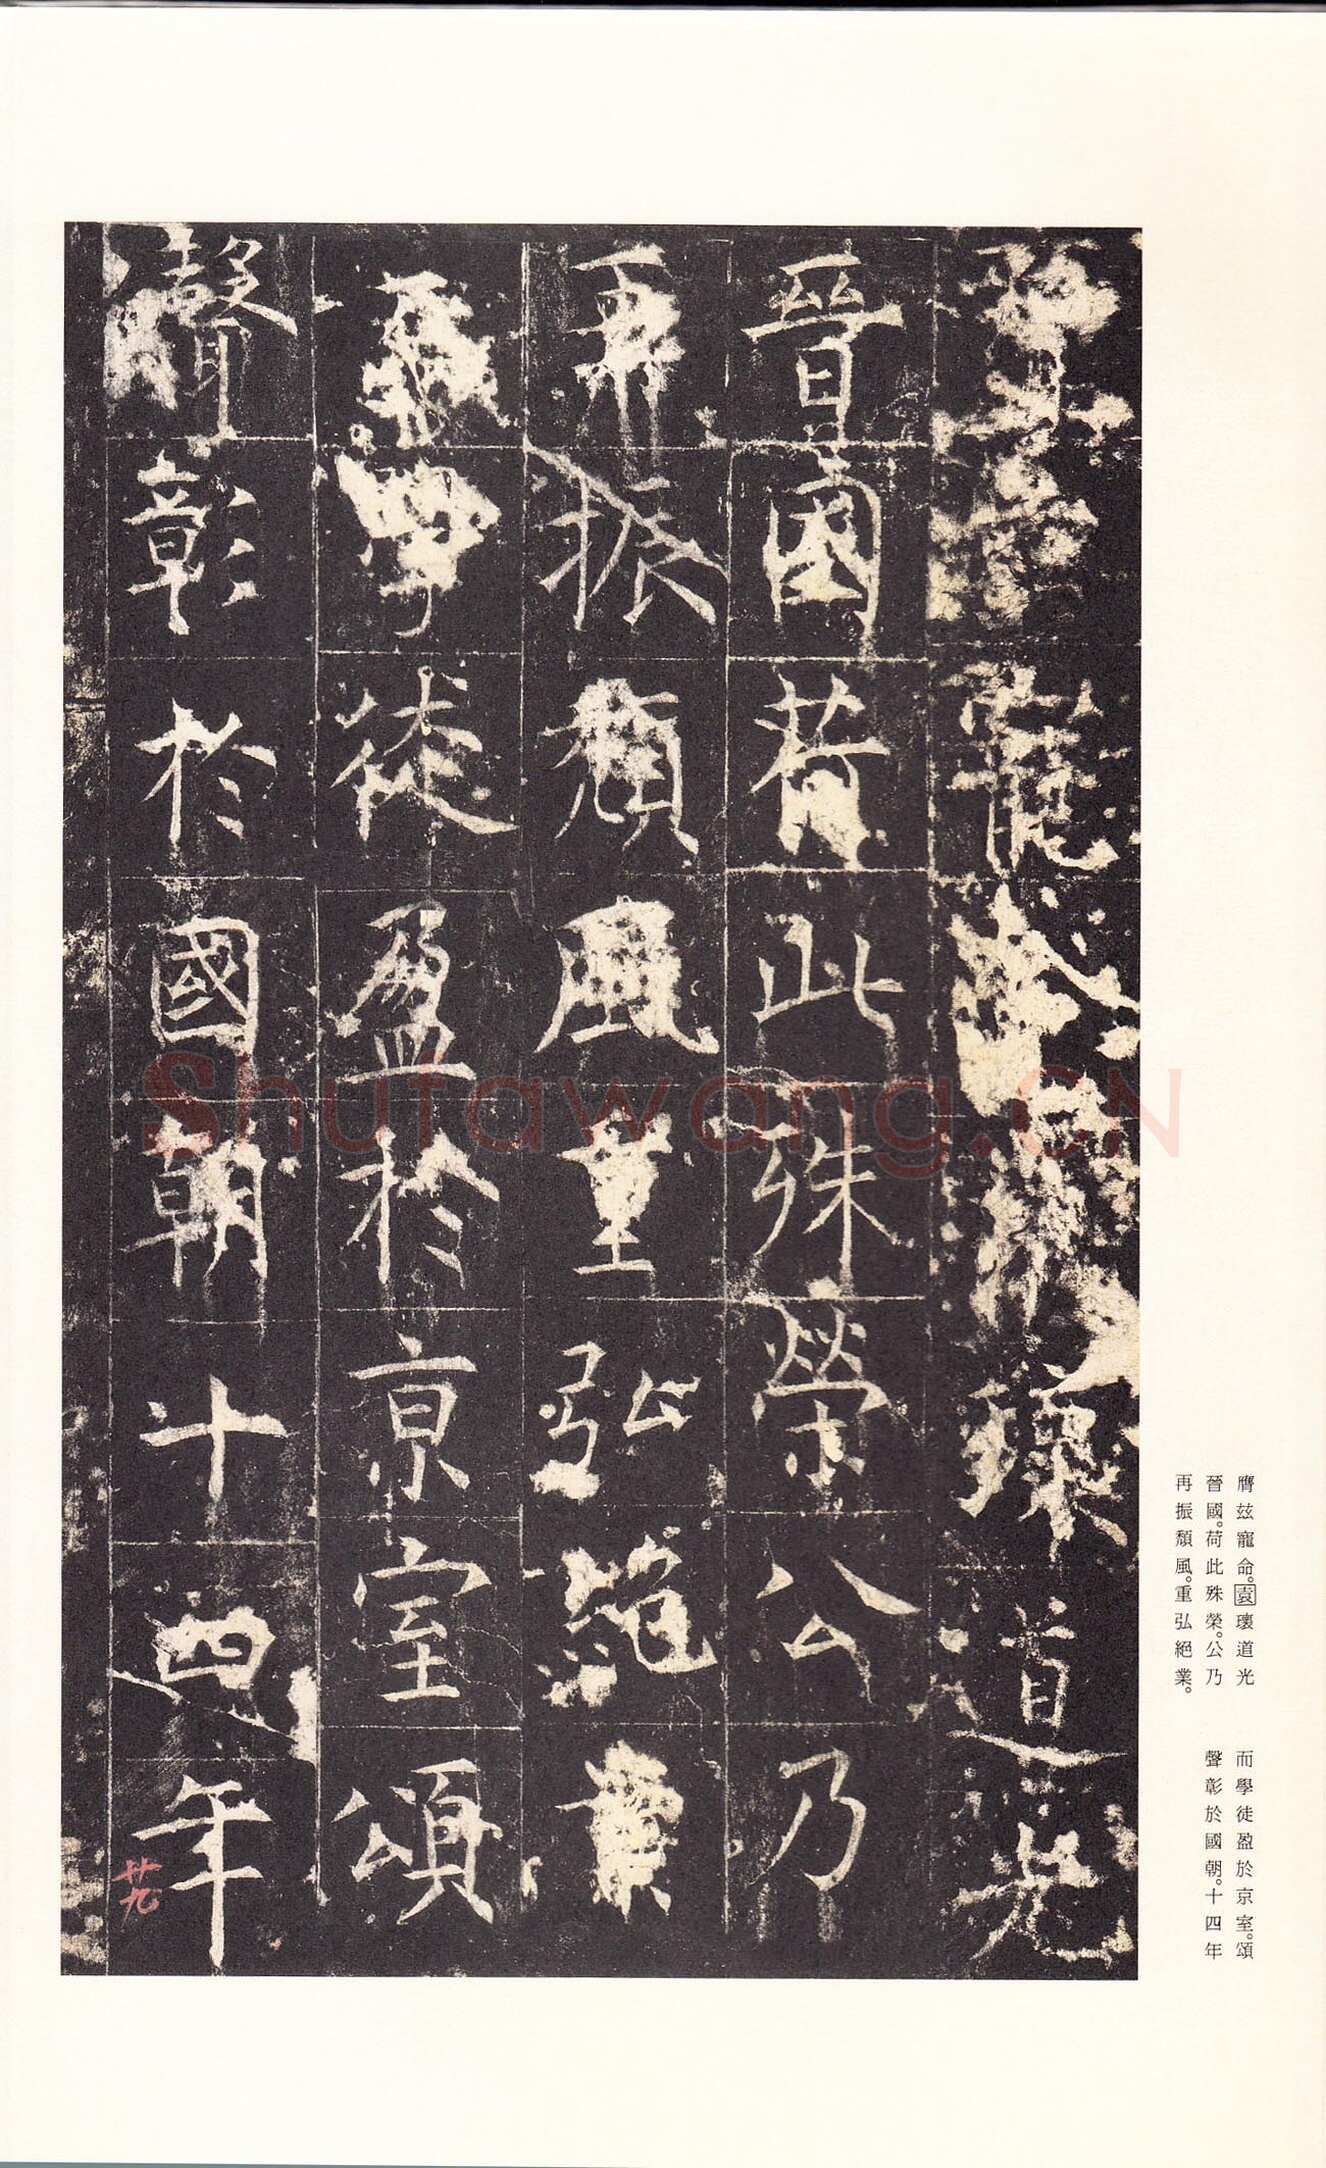 膺茲寵命袁瓌道光
晉國荷此殊榮公乃
再振頹風重弘絕業
而學徒盈於京室頌
聲彰於國朝十四年
廿九
膺茲寵命。袁瓌道光
晉國。荷此殊榮。公乃
再振頹風。重弘絕業。
而學徒盈於京室。頌
聲彰於國朝。十四年
Shufawang.CN